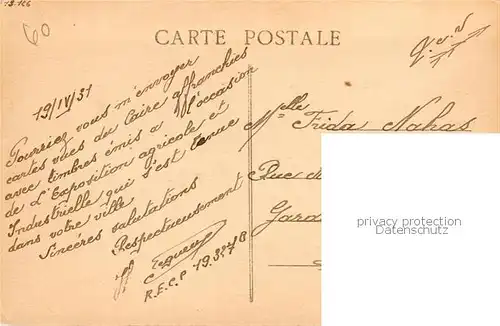 13.166
60
CARTE POSTALE
19/IV/31
Pourriez vous m'envoyer
cartes vues du Caire affranchies
avec timbres émis a l'occasion
de L'Exposition agricole et
Industrielle qui s'est tenue
dans votre ville
Sincéres salutations
Respectueusement
R.E.C.P 19.387B
Melle Frida Nahas
Rue de
Gara
privacy protection
www.oldthing.de